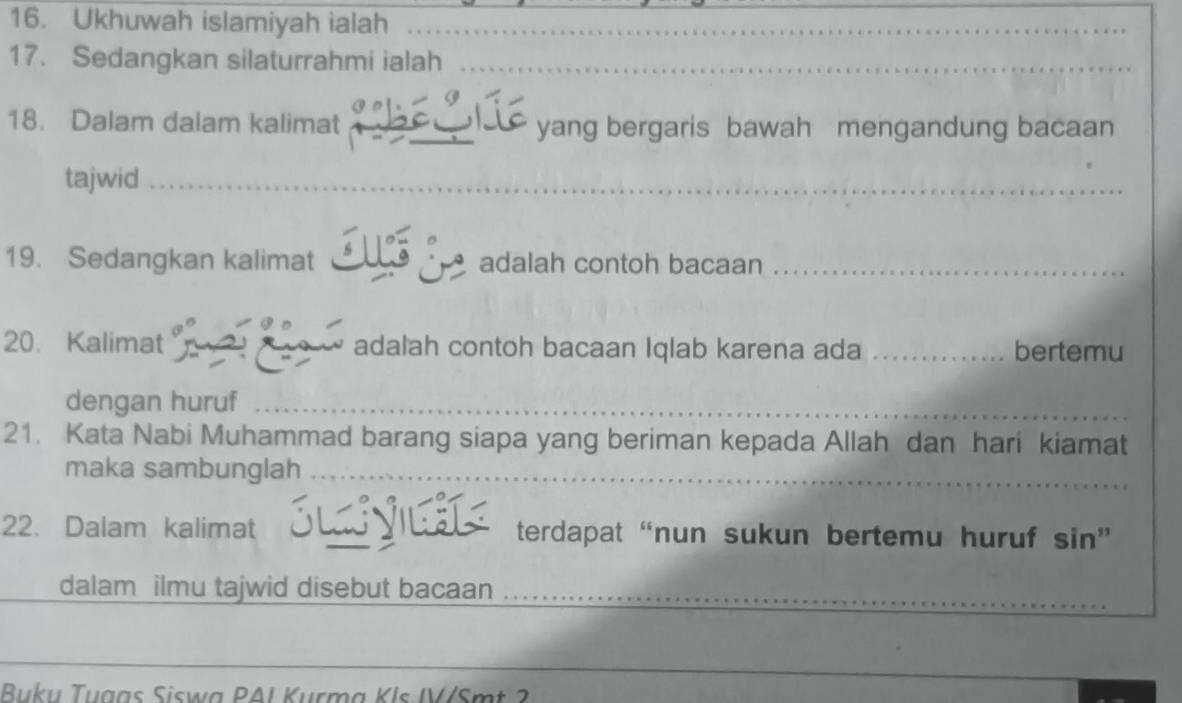 16. Ukhuwah islamiyah ialah ........................................
17. Sedangkan silaturrahmi ialah ........................................
18. Dalam dalam kalimat عَذَابٌ عَظِيْمٌ yang bergaris bawah mengandung bacaan
tajwid ........................................
19. Sedangkan kalimat مِنْ قَبْلِكَ adalah contoh bacaan ........................................
20. Kalimat سَمِيْعٌ بَصِيْرٌ adalah contoh bacaan Iqlab karena ada .............. bertemu
dengan huruf ........................................
21. Kata Nabi Muhammad barang siapa yang beriman kepada Allah dan hari kiamat
maka sambunglah ........................................
22. Dalam kalimat خَلَقْنَا الْاِنْسَانَ terdapat “nun sukun bertemu huruf sin”
dalam ilmu tajwid disebut bacaan ........................................
Buku Tugas Siswa PAI Kurma Kls IV/Smt 2